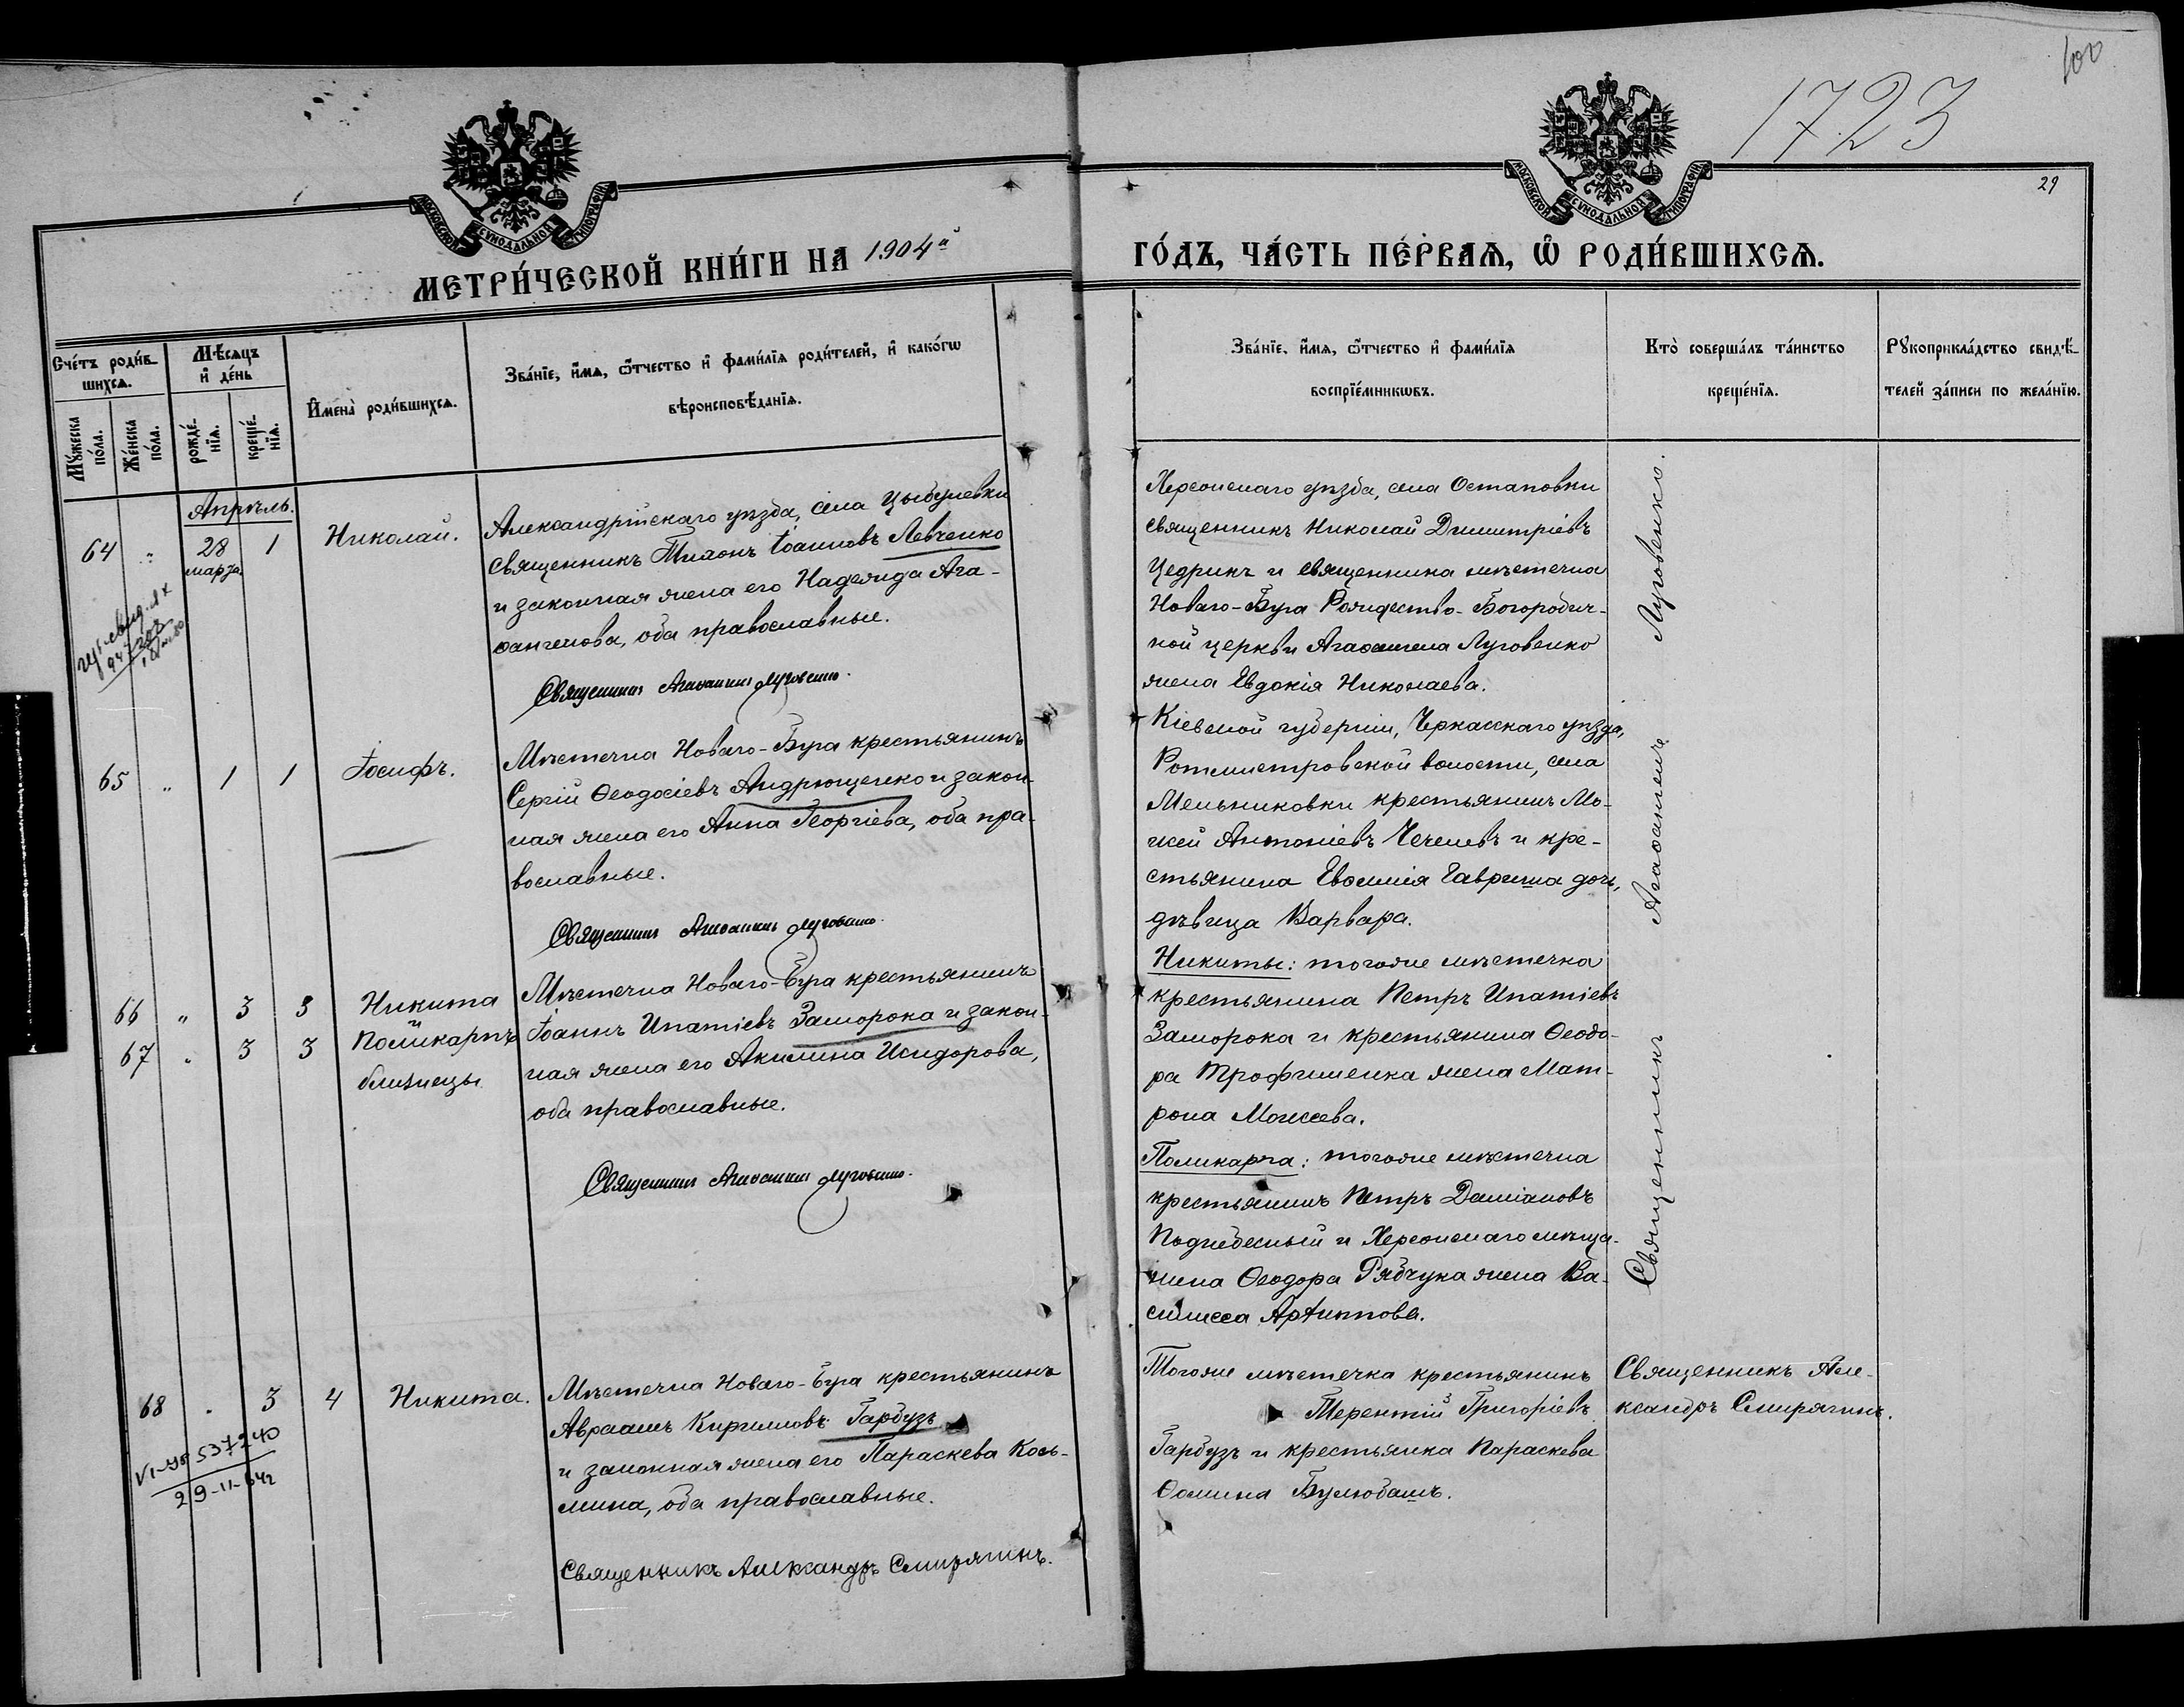 100
1723
29
МОСКОВСКОЙ СѴНОДАЛЬНОЙ ТИПОГРАФІИ
МОСКОВСКОЙ СѴНОДАЛЬНОЙ ТИПОГРАФІИ
МЕТРИ́ЧЕСКОЙ КНИ́ГИ НА 1904й
ГО́ДЪ, ЧА́СТЬ ПЕ́РВАѦ, Ѡ҆ РОДИ́ВШИХСѦ.
Сче́тъ роди́вшихсѧ.
Мꙋ́жеска по́ла.
Же́нска по́ла.
Мѣ́сѧцъ и҆ де́нь
рожде́нїѧ.
креще́нїѧ.
И҆мена̀ роди́вшихсѧ.
Зва́нїе, и҆́мѧ, ѻ҆́тчество и҆ фами́лїѧ роди́телей, и҆ како́гѡ
вѣроисповѣ́данїѧ.
Зва́нїе, и҆́мѧ, ѻ҆́тчество и҆ фами́лїѧ
воспрїе́мникѡвъ.
Кто̀ соверша́лъ та́инство
креще́нїѧ.
Рꙋкоприкла́дство свидѣ́-
телей за́писи по жела́нїю.
Апрѣль.
64 " 28 марта 1 Николай.
Александрійскаго уѣзда, села Цыбулевки
священникъ Тихонъ Іоанновъ Левченко
и законная жена его Надежда Ага-
ѳангелова, оба православные.
Священникъ Агаѳангелъ Луговенко.
Херсонскаго уѣзда, села Остаповки
священникъ Николай Димитріевъ
Цедрикъ и священника мѣстечка
Новаго-Буга Рождество-Богородич-
ной церкви Агаѳангела Луговенко
жена Евдокія Николаева.
65 " 1 1 Іосифъ.
Мѣстечка Новаго-Буга крестьянинъ
Сергій Ѳеодосіевъ Андрющенко и закон-
ная жена его Анна Георгіева, оба пра-
вославные.
Священникъ Агаѳангелъ Луговенко.
Кіевской губерніи, Черкасскаго уѣзда,
Ротмистровской волости, села
Мельниковки крестьянинъ Мо-
исей Антоніевъ Чечелевъ и кре-
стьянина Евѳимія Гавриша дочь,
дѣвица Варвара.
66 " 3 3 Никита
и
67 " 3 3 Поликарпъ
близнецы
Мѣстечка Новаго-Буга крестьянинъ
Іоаннъ Ипатіевъ Заморока и закон-
ная жена его Акилина Исидорова,
оба православные.
Священникъ Агаѳангелъ Луговенко.
Никиты: тогоже мѣстечка
крестьянина Петръ Ипатіевъ
Заморока и крестьянина Ѳеодо-
ра Трофименка жена Мат-
рона Моисеева.
Поликарпа: тогоже мѣстечка
крестьянинъ Петръ Даміановъ
Поднебесный и Херсонскаго мѣща-
нина Ѳеодора Рябчука жена Ва-
силисса
Священникъ Агаѳангелъ Луговенко.
68 " 3 4 Никита.
VI-УР 537240
29-11-64г
Мѣстечка Новаго-Буга крестьянинъ
Авраамъ Кирилловъ Гарбузъ
и законная жена его Параскева Кось-
мина, оба православные.
Священникъ Александръ Смирягинъ.
Тогоже мѣстечка крестьянинъ
Терентій Григоріевъ
Гарбузъ и крестьянка Параскева
Ѳомина Булюбашъ.
Священникъ Але-
ксандръ Смирягинъ.